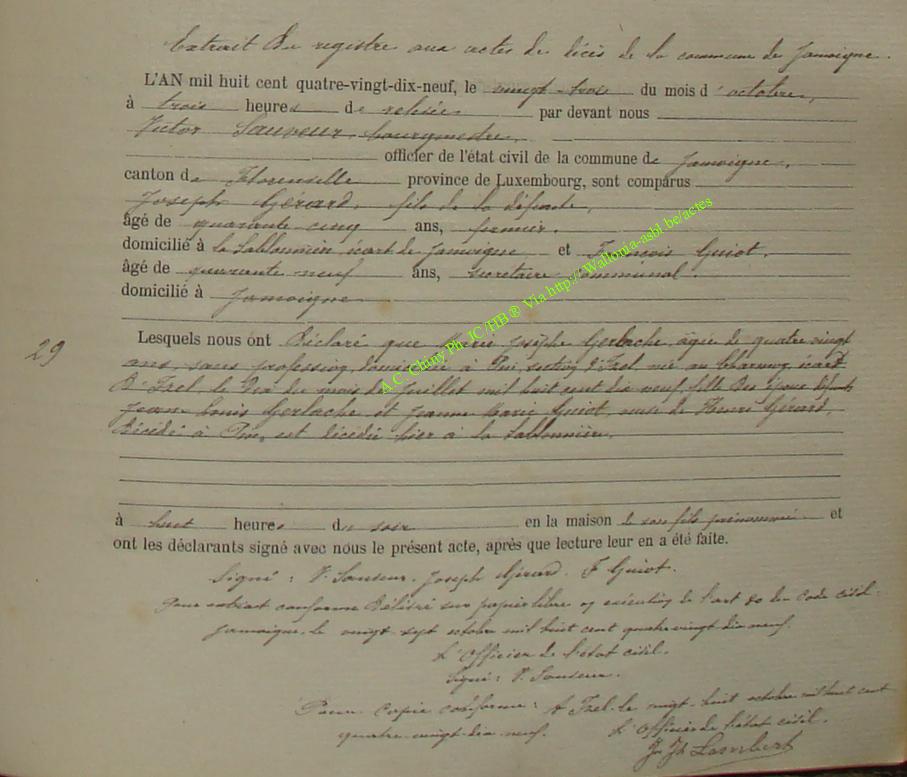 Extrait du registre aux actes de décès de la commune de Jamoigne.
L'AN mil huit cent quatre-vingt-dix-neuf, le vingt-trois du mois d'octobre,
à trois heures de relevée par devant nous
Victor Sauveur, bourgmestre,
officier de l'état civil de la commune de Jamoigne,
canton de Florenville province de Luxembourg, sont comparus
Joseph Gérard, fils de la défunte,
âgé de quarante-cinq ans, fermier.
domicilié à la Sablonnière, écart de Jamoigne et François Guiot.
âgé de quarante-neuf ans, secrétaire communal.
domicilié à Jamoigne
29
Lesquels nous ont déclaré que Marie Josèphe Gerlache, âgée de quatre vingt
ans, sans profession, domiciliée à Pin, section d'Izel née au Charmoy, écart
d'Izel, le dix du mois de Juillet mil huit cent dix neuf, fille des époux défunts
Jean Louis Gerlache et Jeanne Marie Guiot, veuve de Henri Gérard,
décédé à Pin, est décédée hier à la Sablonnière.
à huit heures du soir en la maison de son fils prénommé et
ont les déclarants signé avec nous le présent acte, après que lecture leur en a été faite.
Signé : V. Sauveur. Joseph Gérard. F Guiot.
Pour extrait conforme délivré sur papier libre en exécution de l'art 80 du Code civil.
Jamoigne, le vingt-sept octobre mil huit cent quatre vingt dix neuf.
L'Officier de l'état civil.
Signé : V. Sauveur.
Pour copie conforme : A Izel le vingt-huit octobre mil huit cent
quatre-vingt-dix-neuf. L'Officier de l'état civil.
Jn Jh Lambert
A.C. Chiny Ph. JC/HB ® Via http://Wallonia-asbl.be/actes